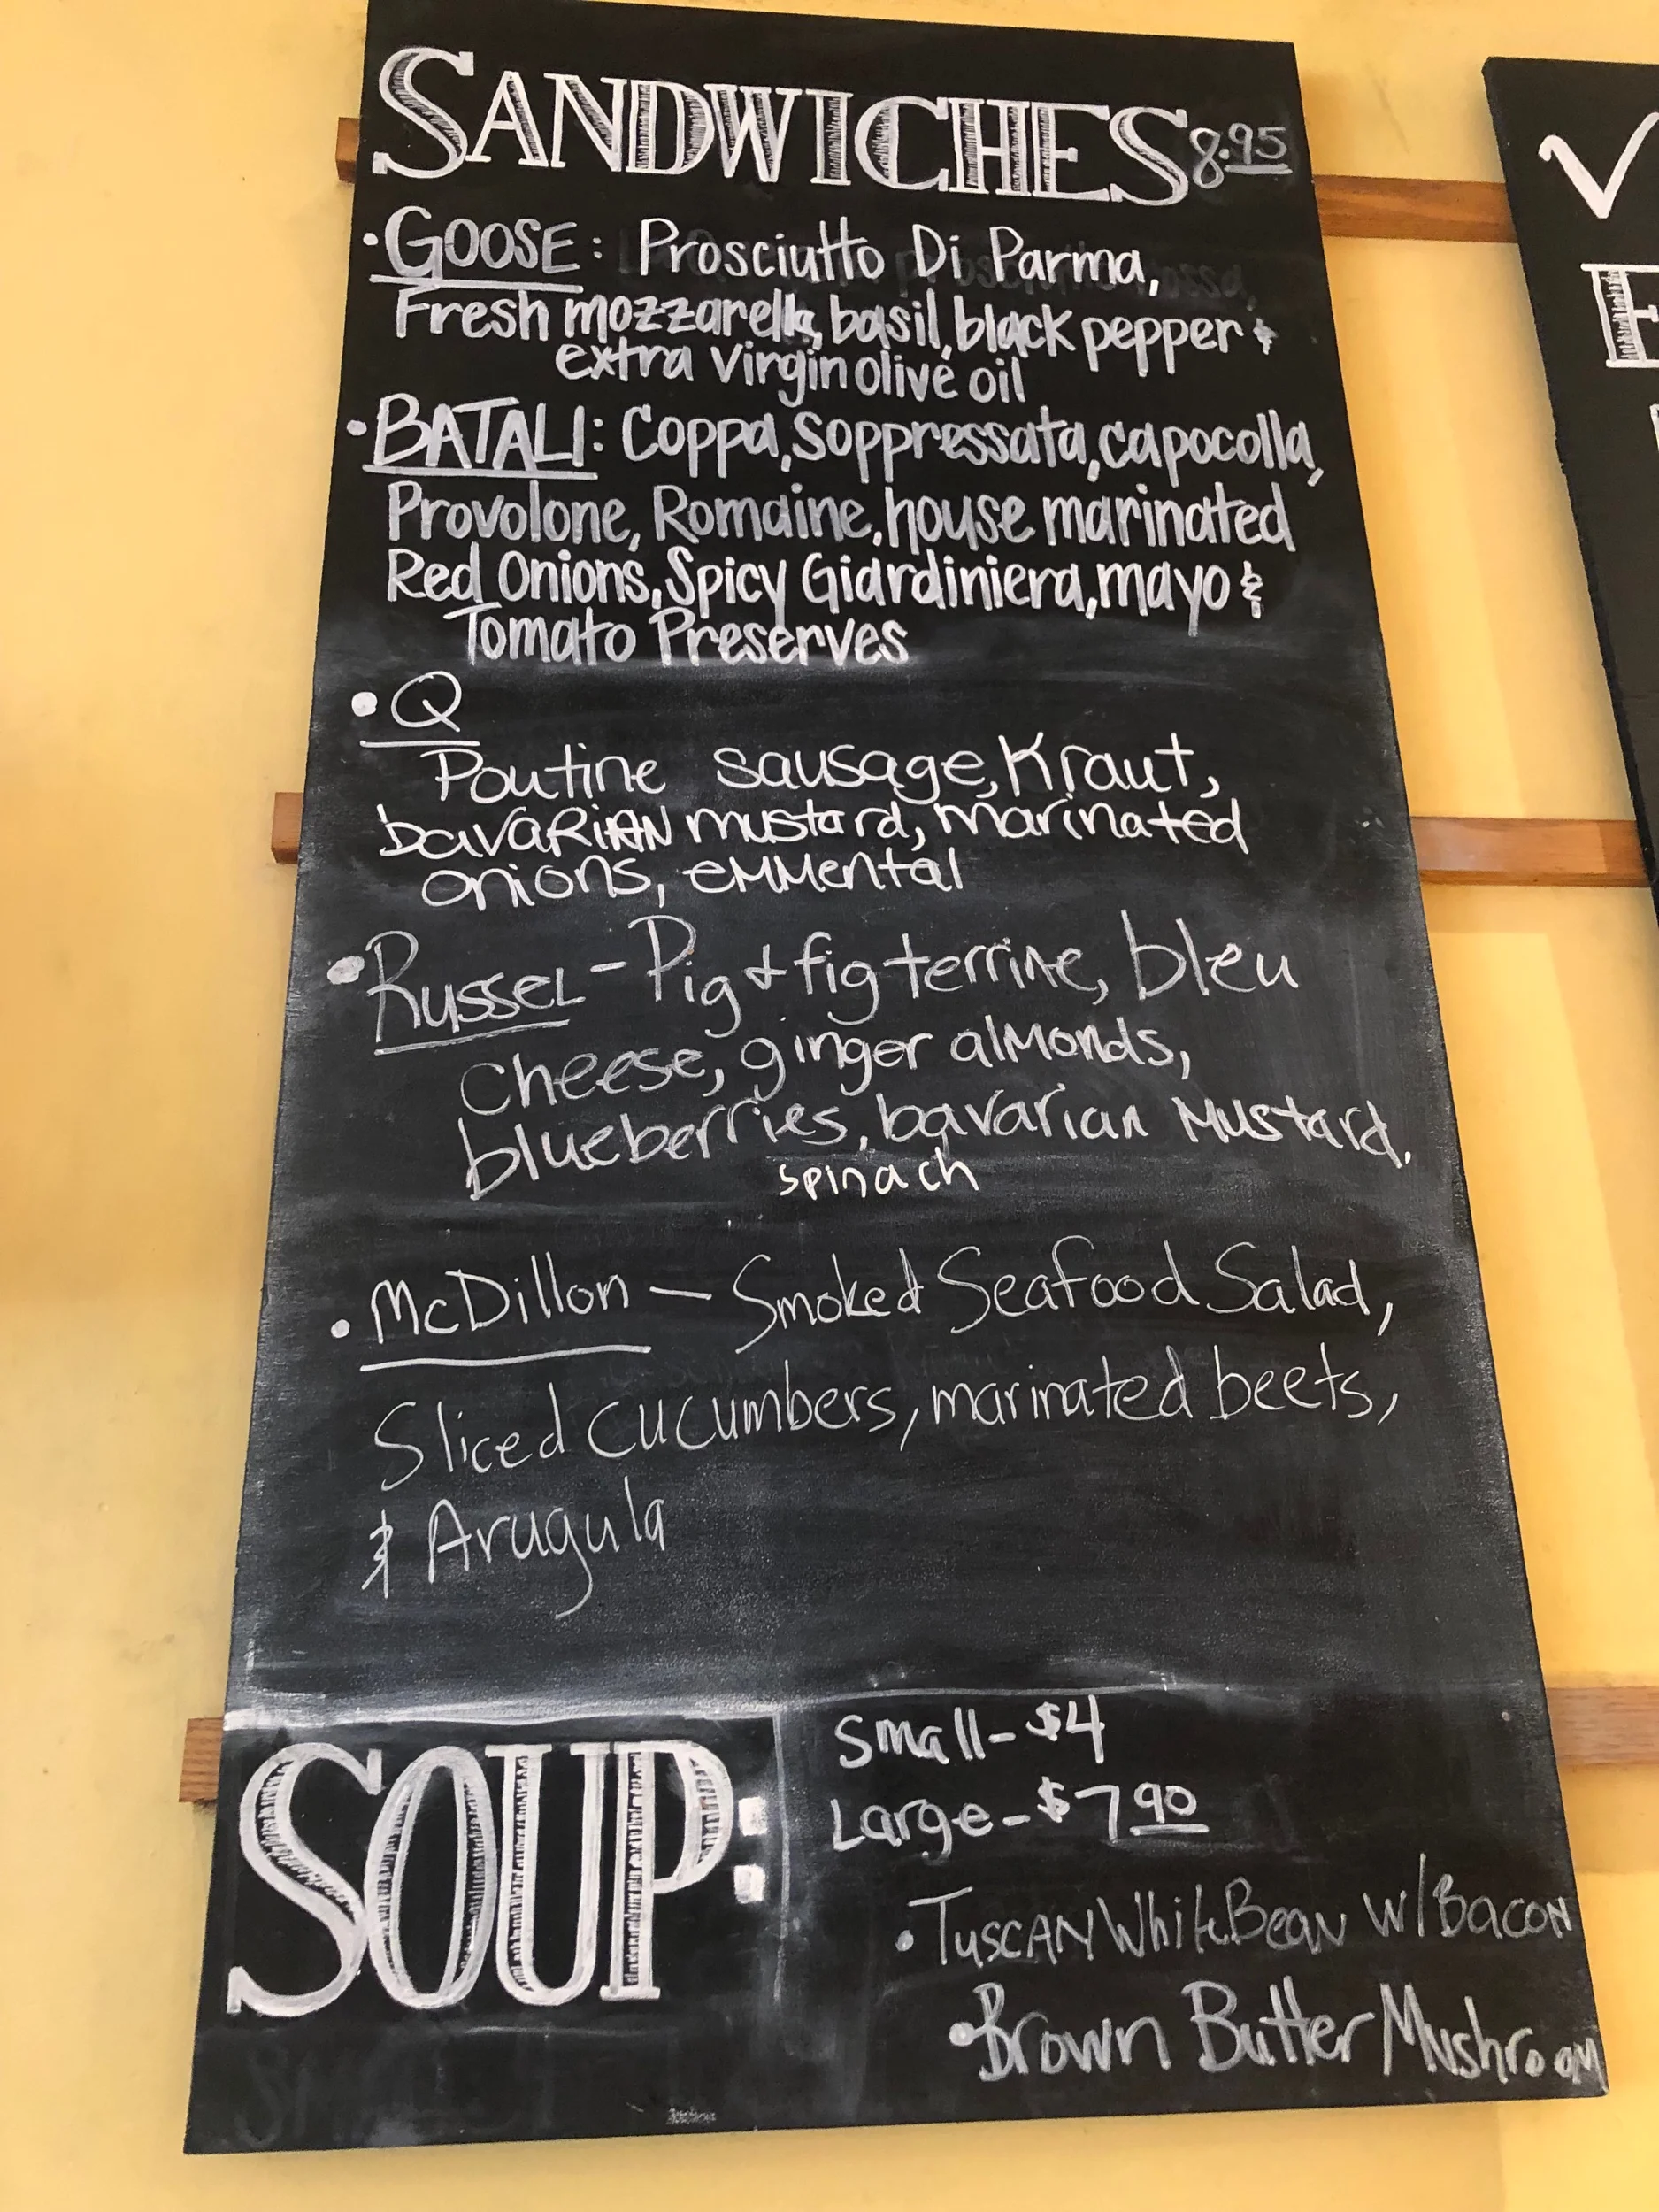 SANDWICHES 8.95
• GOOSE: Prosciutto Di Parma,
Fresh mozzarella, basil, black pepper &
extra virgin olive oil
• BATALI: Coppa, Soppressata, capocolla,
Provolone, Romaine, house marinated
Red Onions, Spicy Giardiniera, mayo &
Tomato Preserves
• Q
Poutine sausage, Kraut,
bavARiAN mustard, marinated
onions, emmental
• Russel - Pig & fig terrine, bleu
cheese, ginger almonds,
blueberries, bavarian mustard.
spinach
• McDillon — Smoked Seafood Salad,
Sliced cucumbers, marinated beets,
& Arugula
SOUP:
Small - $4
Large - $7 90
• Tuscan White Bean w/ Bacon
• Brown Butter Mushroom